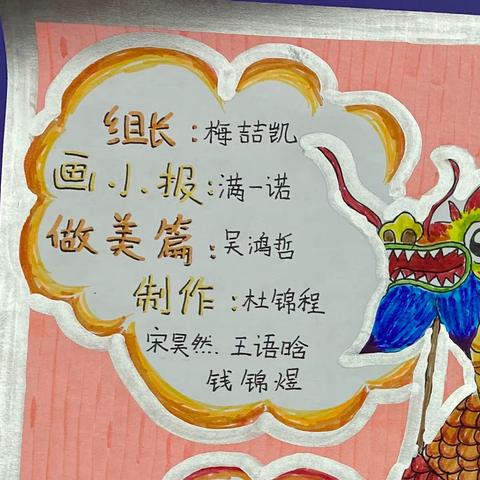 组长：梅喆凯
画小报：满一诺
做美篇：吴鸿哲
制作：杜锦程
宋昊然.王语晗
钱锦煜